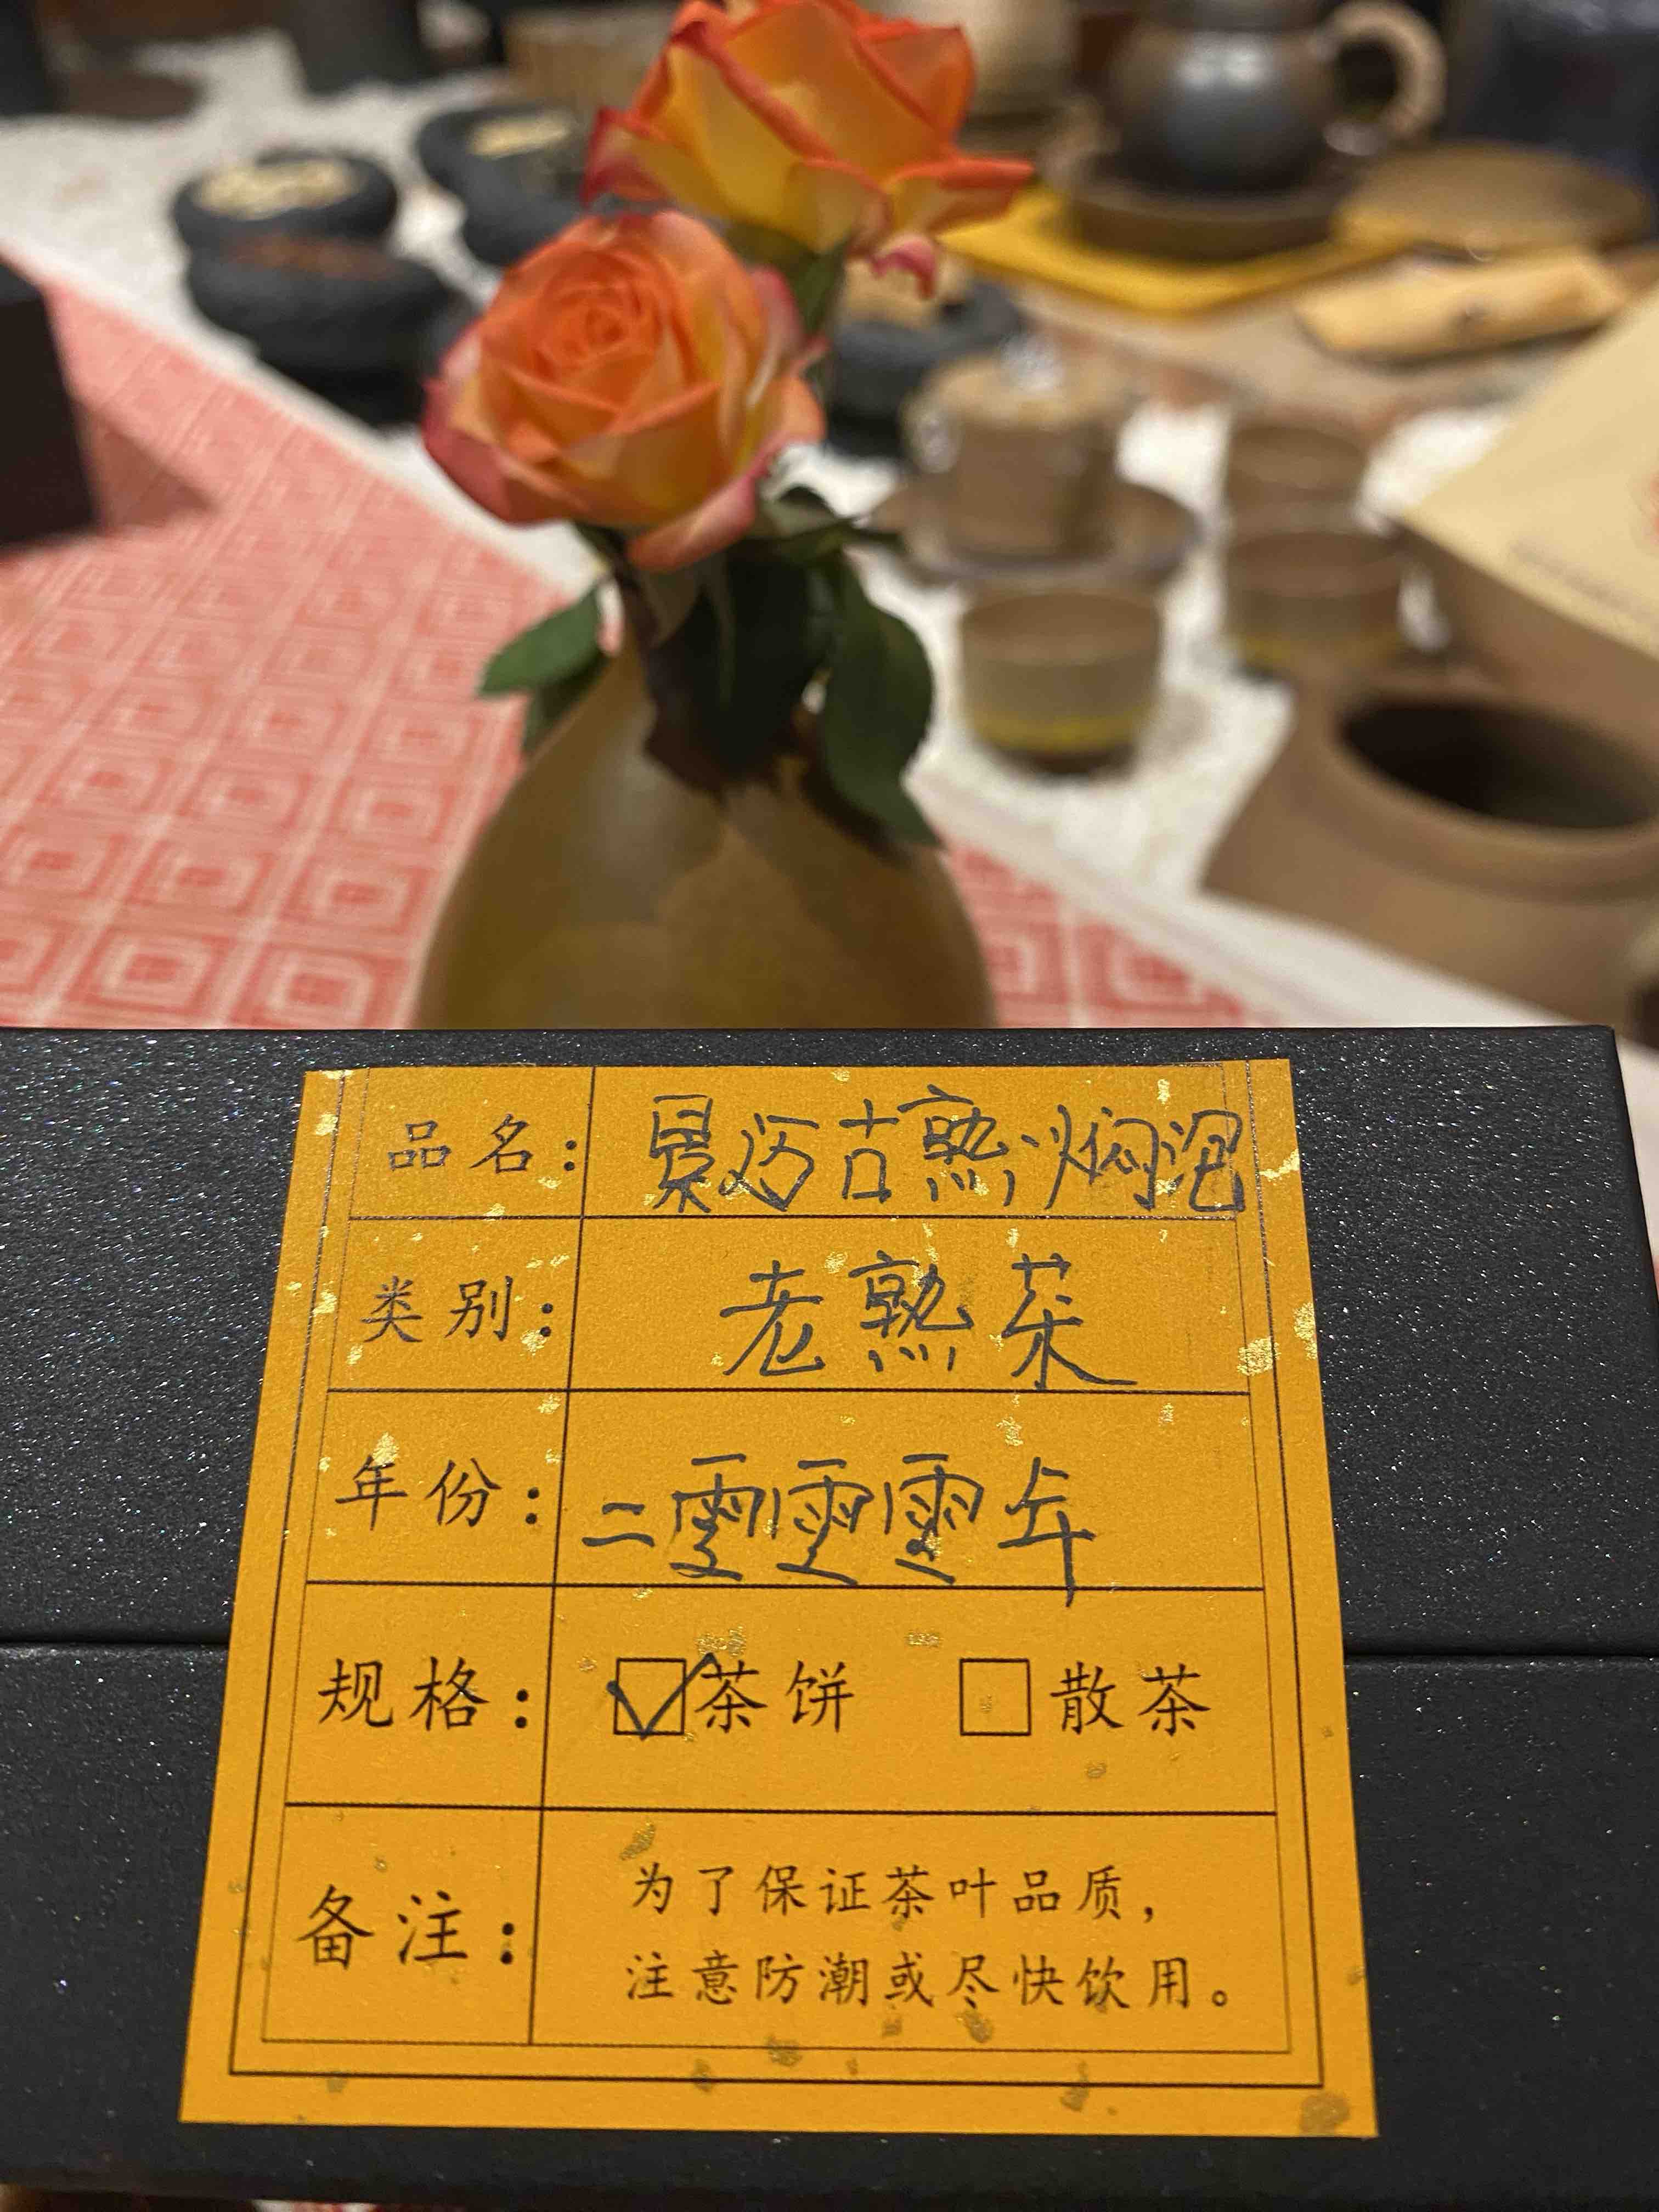 品名： 景迈古熟 焖泡
类别： 老熟茶
年份： 二零零零年
规格： ☑茶饼 ☐散茶
备注： 为了保证茶叶品质，
注意防潮或尽快饮用。